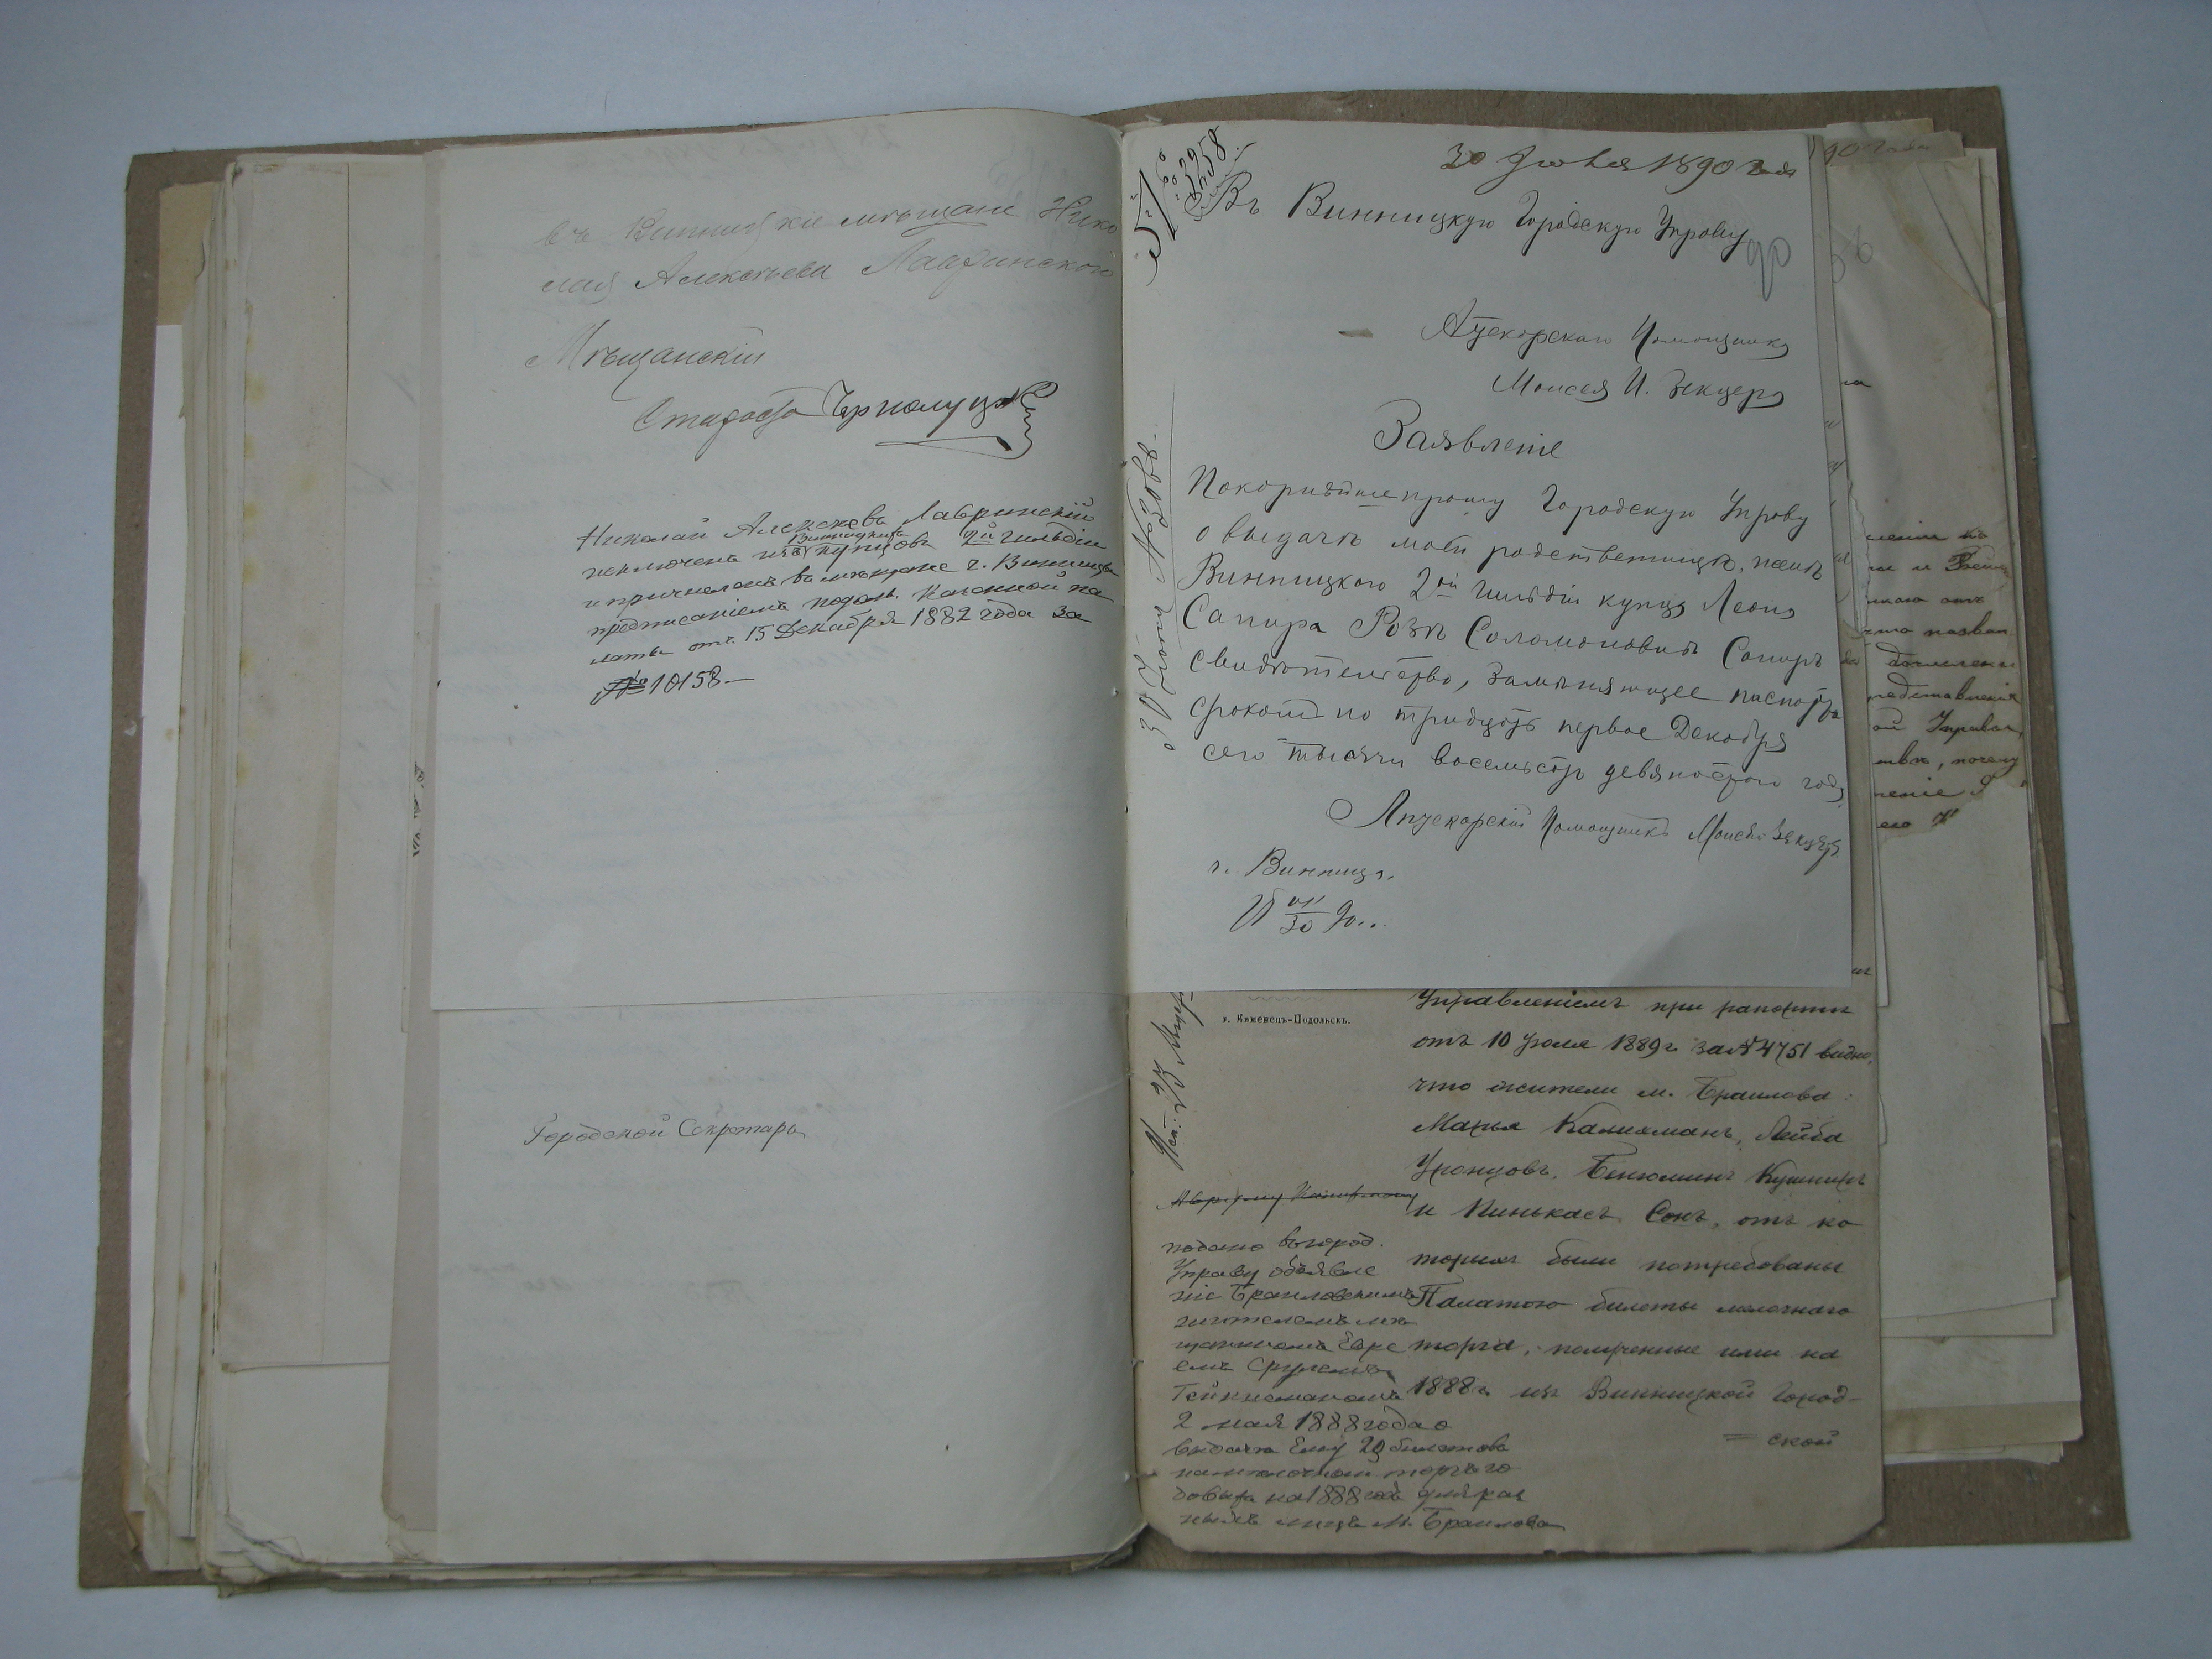 въ Винницкіе мѣщане Нико
лая Алексѣева Лавринскаго
Мѣщанскій
Староста
Николай Алексѣевъ Лавринскій
исключенъ изъ Винницкихъ купцовъ 2й гильдіи
и причисленъ въ мѣщане г. Винницы
предписаніемъ подол. Казенной па
латы отъ 15 Декабря 1882 года за
№ 10158.—
Городской Секретарь
30 Іюня 1890 года
3258
Въ Винницкую Городскую Управу
90
Аптекарскаго Помощника
Моисея И. Зекцера
Заявленіе
Покорнѣйше прошу Городскую Управу
о выдачѣ моей родственницѣ, женѣ
Винницкого 2ой Гильдіи купца Леона
Сапира Розѣ Соломоновнѣ Сапиръ
свидѣтельство, замѣняющее паспортъ
срокомъ по тридцать первое Декабря
сего тысяча восемьсотъ девяностого года
Аптекарскій Помощникъ Моисей Зекцеръ
г. Винница.
30 Іюня
г. Каменецъ-Подольскъ.
Управленіемъ при рапортѣ
отъ 10 Іюля 1889 г. за № 4751 видно,
что жители м. Браилова:
Калихманъ, Лейба
Бенюминъ Кушниръ
и Пинькасъ Сонъ, отъ ко
торыхъ были потребованы
Палатою билеты мелочнаго
торга, полученные ими на
1888 г. изъ Винницкой Город-
ской
подано въ город.
Управу объявле
ніе Браиловскимъ
жителемъ мѣ
щаниномъ Евре
емъ Срулемъ
2 мая 1888 года о
выдачѣ ему 20 билетовъ
на мелочный торгъ го
довыхъ на 1888 годъ для раз
ныхъ лицъ м. Браилова